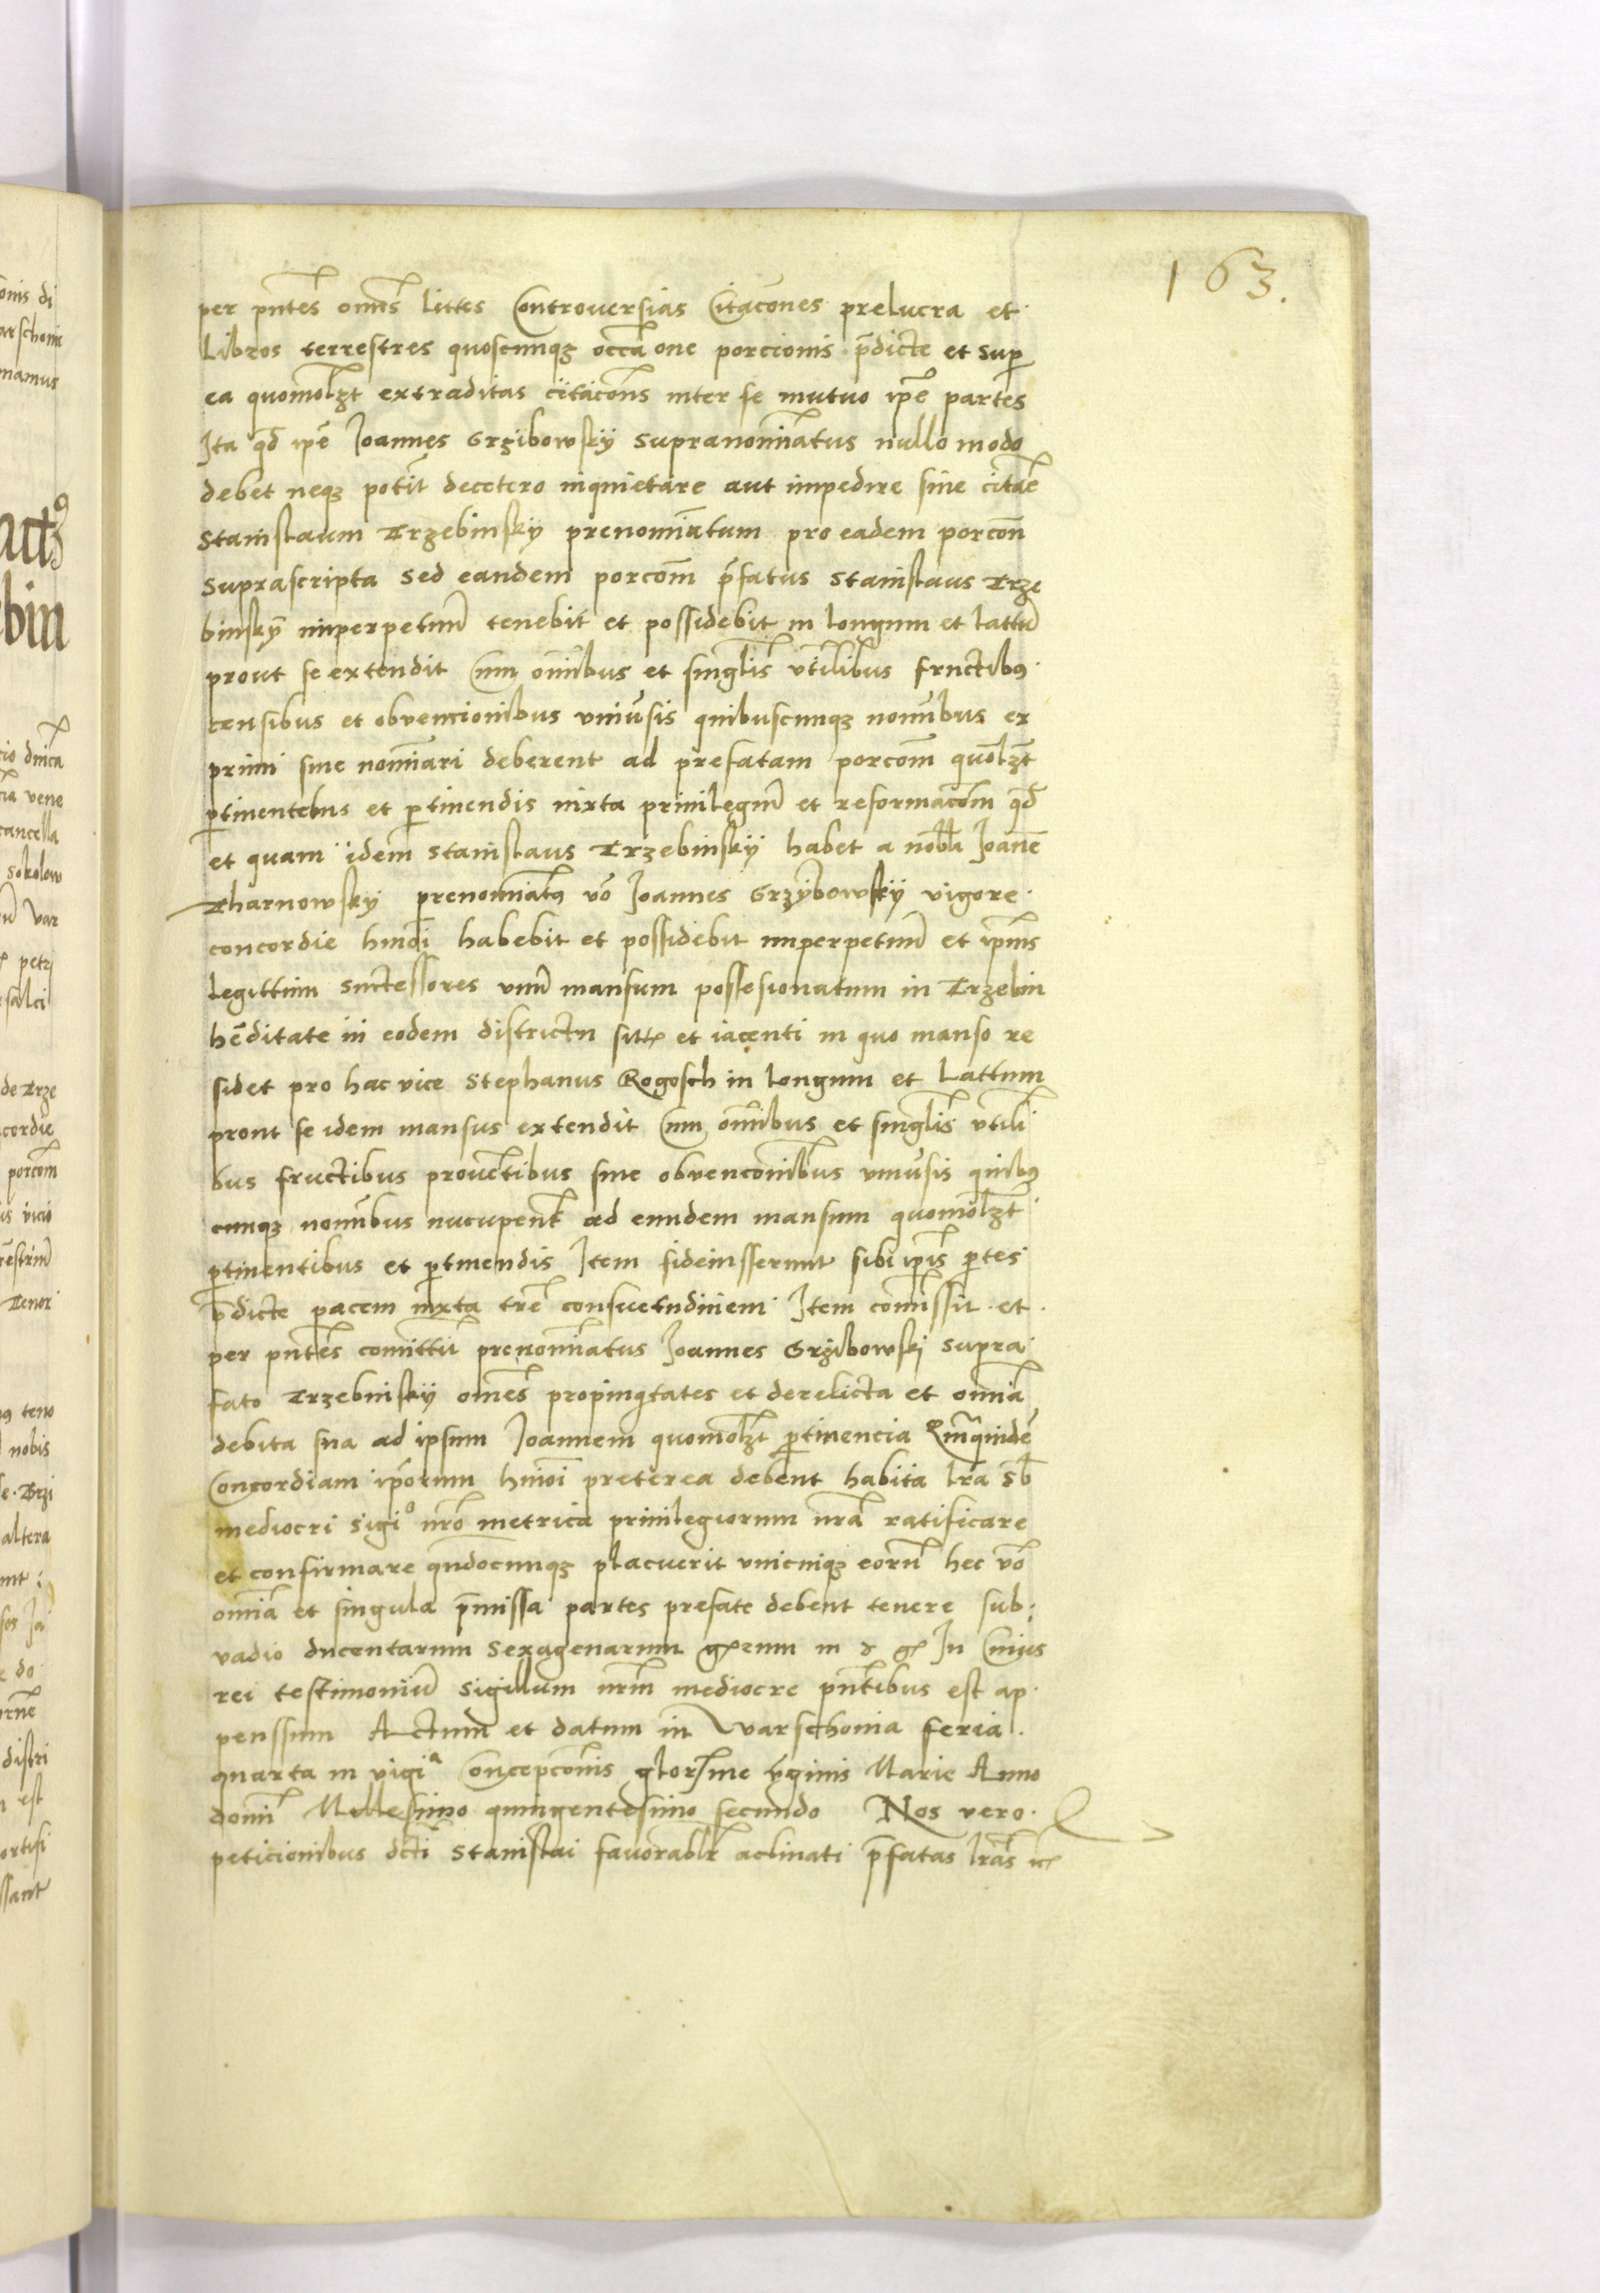 163.
per pñtes omñes littes Controuersias Citacõnes prelucra et
Libros terrestres quoscunqꝫ occãone porcionis p̃dicte et sup
ea quomolꝫt extraditas citacõns inter se mutuo ip̃e partes
Ita qd̃ ip̃e Joannes Grzibowskij supranomĩatus nullo modo
debet neqꝫ potĩt decetero inquietare aut impedire siue citaẽ
Stanislaum Trzebinskij prenomĩatum pro eadem porcoñ
suprascripta sed eandem porcoñm p̃fatus Stanislaus Trze
binskÿ inperpetuũ tenebit et possidebit in longum et lattũ
prout se extendit Cum om̃ibus et singl̃is vtilib̃us fructibꝰ
censibus et obuencionibus vniũsis quibuscunqꝫ nomĩbus ex
primi siue nomĩari deberent ad prefatam porcom̃ quol̃ꝫt
ptinentibus et ptinendis iuxta priuilegiũ et reformacom̃ qd̃
et quam idem Stanislaus Trzebinskij habet a nobl̃i Joañe
Tharnowskij prenomĩatꝰ vo̊ Joannes Grzÿbowskij vigore
concordie hm̃oi habebit et possidebit inperpetuũ et ip̃ius
legittimi suctessores vnũ mansum possesionatum in Trzebin
hẽditate in eodem districtu sitt et iacenti in quo manso re
sidet pro hac vice Stephanus Rogosch in longum et Lattum
prout se idem mansus extendit Cum om̃ibus et singl̃is vtili
bus fructibus prouẽtibus siue obuencõnibus vniũsis quibꝰ
cunqꝫ nomĩbus nucupent̃ ad eundem mansum quomol̃ꝫt
ptinentibus et ptinendis Item fideiusserunt sibi ip̃is ptes
p̃dicte pacem iuxta trẽ consuetudinem Item com̃issit et
per pñtes comittit prenomĩatus Joannes Grzibowskj supra
fato Trzebinskij om̃es propinqtates et derelicta et om̃ia
debita sua ad ipsum Joannem quomol̃ꝫt ptinencia
Concordiam ip̃orum hm̃oi preterea debent habita lr̃a sb̃
mediocri sigiº nr̃o metrica priuilegiorum nr̃a ratificare
et confirmare qñdocunqꝫ placuerit vnicuiqꝫ eorũ hec vo̊
om̃ia et singula p̃missa partes prefate debent tenere sub
vadio ducentarum sexagenarum In Cuius
rei testimoniũ sigillum nr̃m mediocre pñtibus est ap
penssum Actum et datum in Varschouia feria
quarta in vigiª Concepcõnis glorisime v̾ginis Marie Anno
domĩ Millesimo quingentesimo secundo Nos vero
peticionibus dcti Stanislai fauorablr̃ aclinati p̃fatas lr̃as